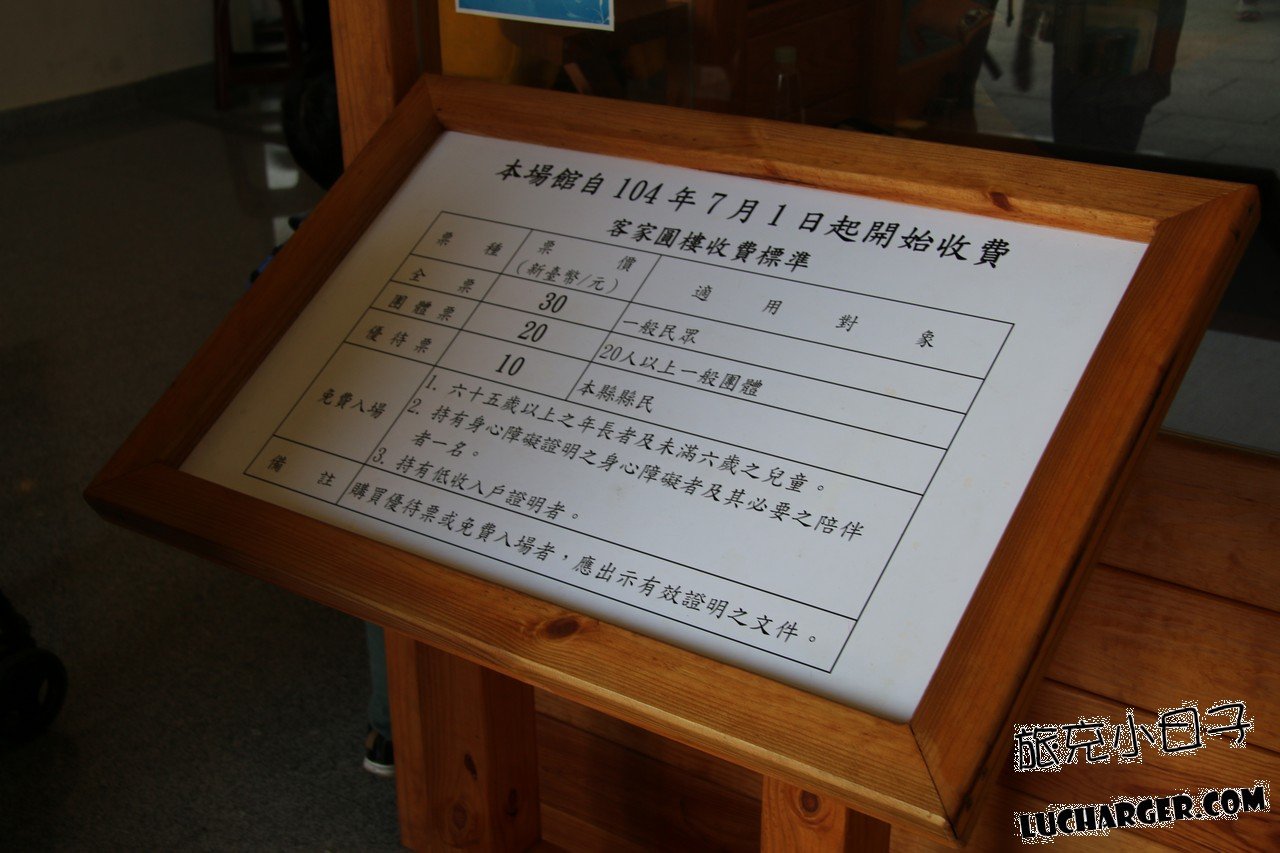 本場館自 104 年 7 月 1 日起開始收費
客家圓樓收費標準
票種 票價 適用對象
(新臺幣/元)
全票 30 一般民眾
團體票 20 20人以上一般團體
優待票 10 本縣縣民
免費入場 1. 六十五歲以上之年長者及未滿六歲之兒童。
2. 持有身心障礙證明之身心障礙者及其必要之陪伴
者一名。
3. 持有低收入戶證明者。
備註 購買優待票或免費入場者，應出示有效證明之文件。
旅充小日子
LUCHARGER.COM